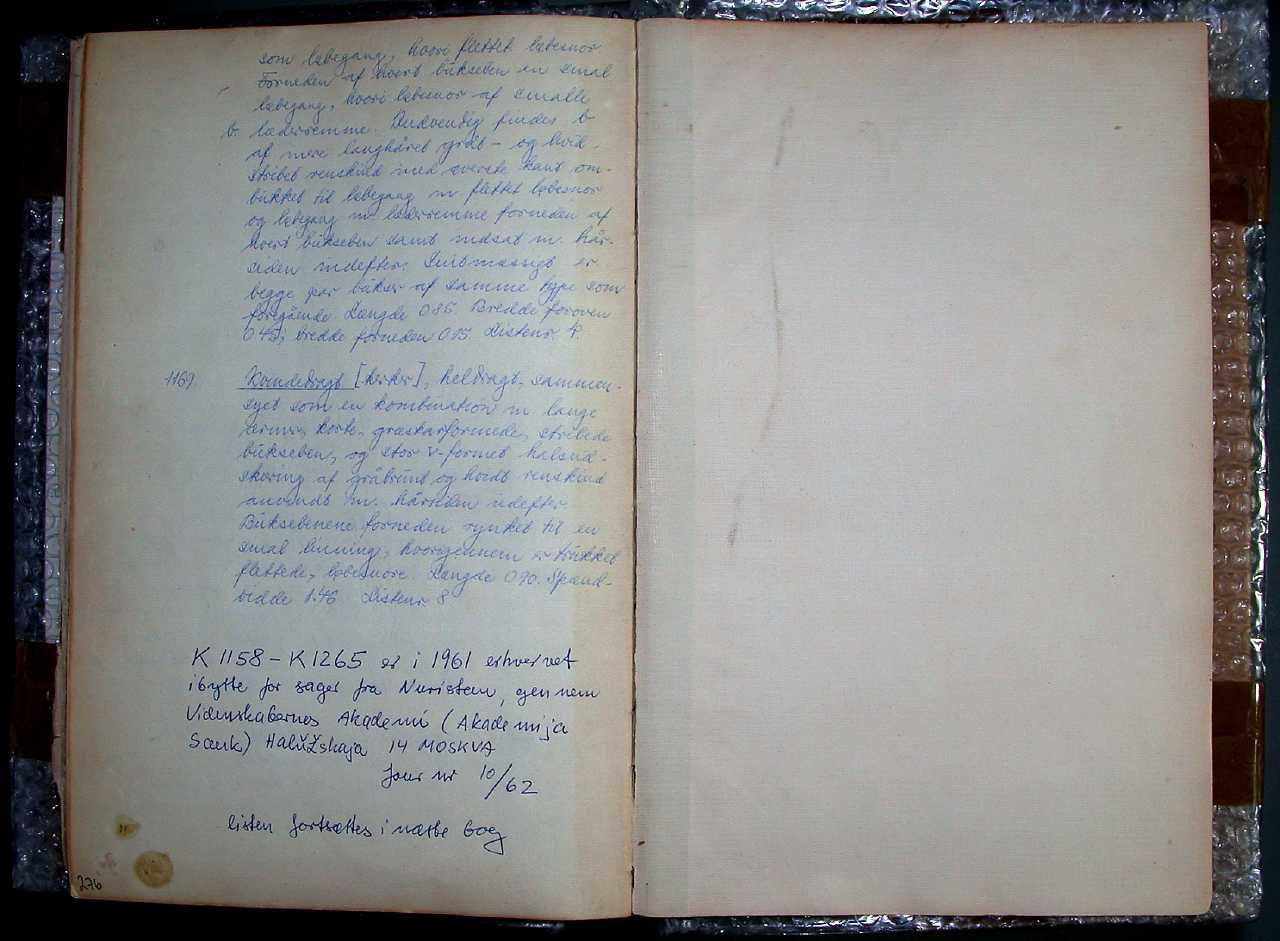 som løbegang, hvori flettet løbesnor
Forneden af hvert bukseben en smal
løbegang, hvori løbesnor af smalle
b. læderremme. Indvendig findes b
af mere langhåret gråt- og hvid-
stribet renskind med øverste kant om-
bukket til løbegang m flettet løbesnor
og løbegang m læderremme forneden af
hvert bukseben samt indsat m. hår-
siden indefter. Snitmæssigt er
begge par bukser af samme type som
foregående. Længde 0.85. Bredde foroven
0.45, bredde forneden 0.15. Listenr.
1169. Kvindedragt [kerker], heldragt, sammen-
syet som en kombination m lange
ærmer, korte, græskarformede, stribede
bukseben, og stor v-formet halsud-
skæring af gråbrunt og hvidt renskind
anvendt m. hårsiden udefter.
Buksebenene forneden rynket til en
smal linning, hvorigennem er trukket
flettede, løbesnore. Længde 0.90. Spænd-
vidde 1.46. Listenr 8
K 1158 - K 1265 er i 1961 erhvervet
ibytte for sager fra Nuristan, gennem
Videnskabernes Akademi (Akademija
Sauk) Halužskaja 14 MOSKVA
Jour nr 10/62
listen fortsættes i næste bog
276